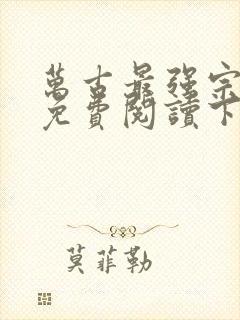 萬古最強宗
免費閱讀下
莫菲勒